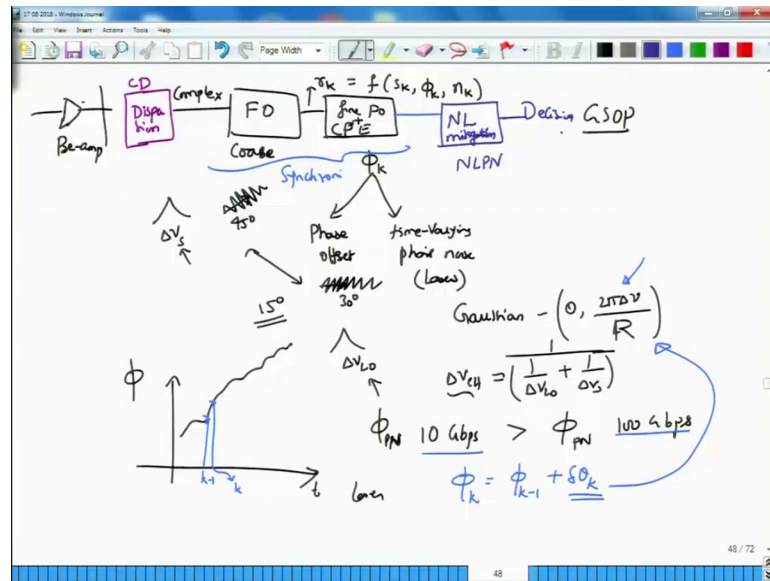 17 08 2018 - Windows Journal
File Edit View Insert Actions Tools Help
Page Width
CD
Dispa
tion
Complex
FO
Coarse
r_k = f(s_k, ϕ_k, n_k)
fine FO
CP+E
NL
mitigation
NLPN
Decision
GSOP
Pre-amp
Synchroni
ϕ_k
45°
Δν_s
Phase
offset
time-varying
phase noise
(laser)
30°
15°
Δν_LO
Gaussian - (0, 2πΔν/R)
Δν_eff = 1/(1/Δν_LO + 1/Δν_s)
ϕ_PN 10 Gbps > ϕ_PN 100 Gbps
ϕ_k = ϕ_{k-1} + δθ_k
ϕ
k-1
k
t
laser
48 / 72
48